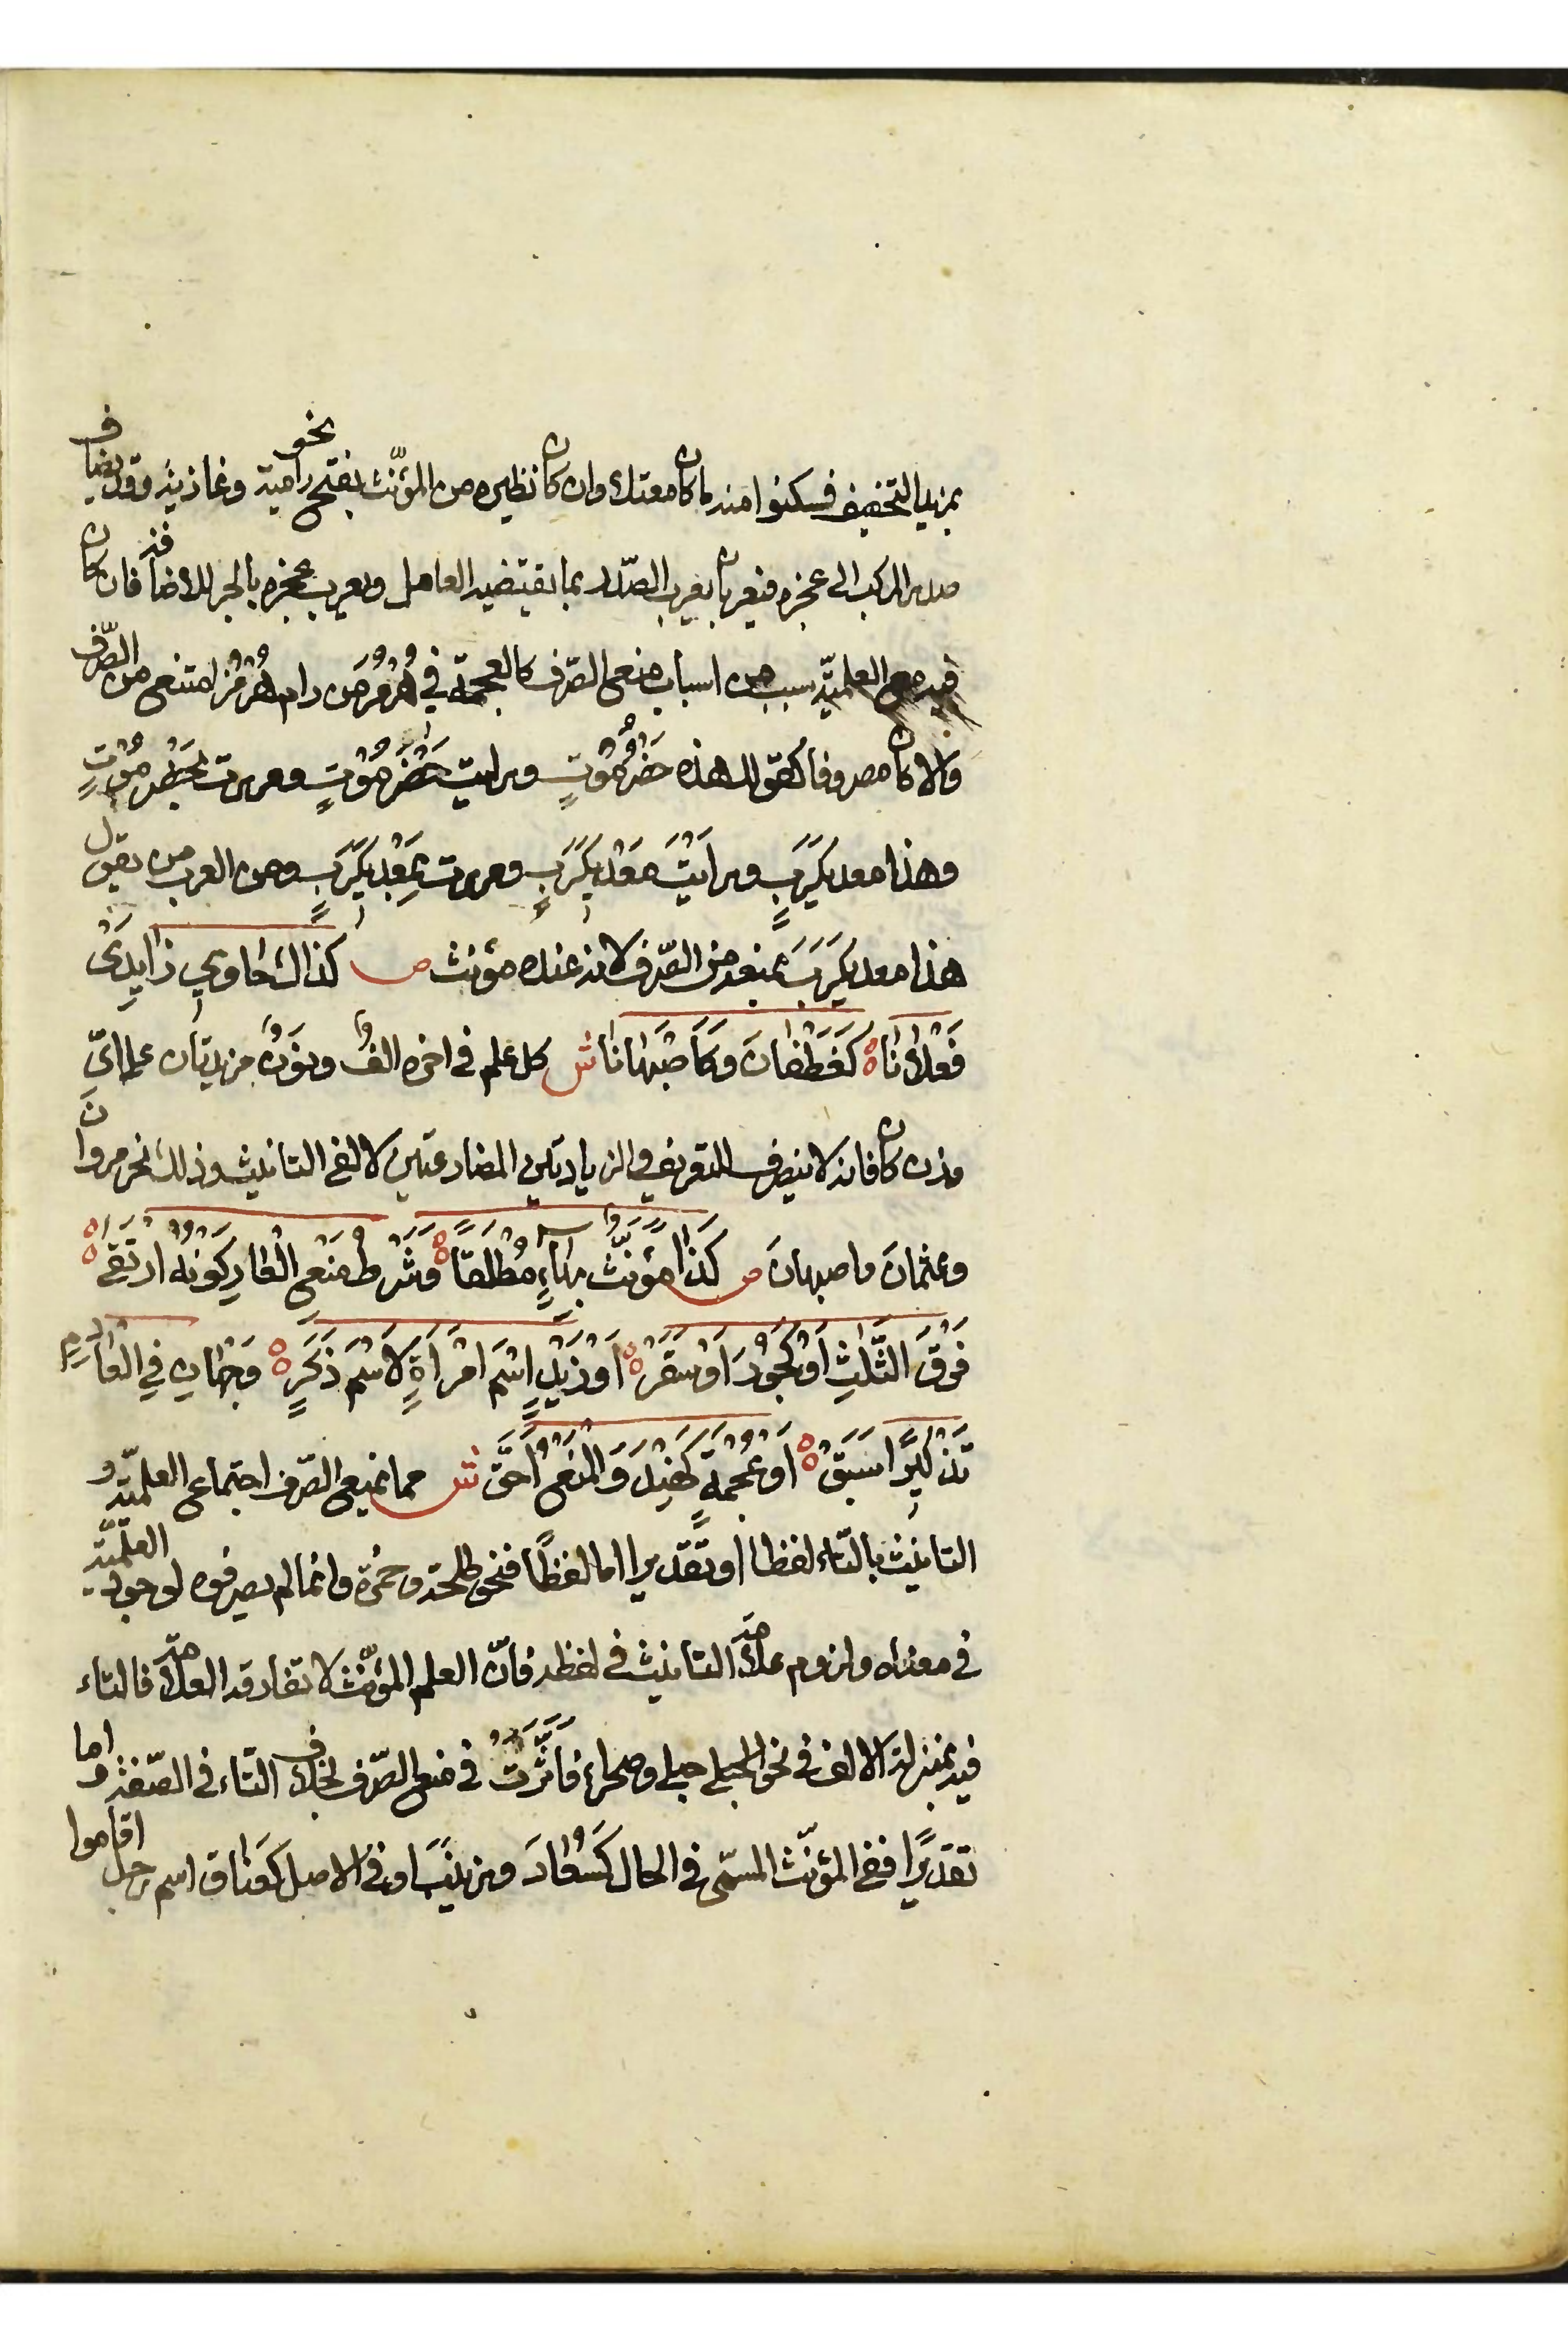 بمزيد التخفيف فسكنوا منه ما كان معتلا وان كان نظيره من المؤنّث بفتح نحو رامية وغازية وقد يضاف
صدر المركب الى عجزه فيعربان يعرب الصّدر بما يقتضيه العامل ويعرب عجزه بالجر للاضافة فان كان
فيه مع العلميّة سبب من اسباب منع الصّرف كالعجمة في هُرْمُزَ من رام هُرْمُزَ امتنع من الصّرف
والا كان مصروفا كقولك هذه حَضْرُمَوْتٍ ورايت حَضْرَمَوْتٍ ومررت بحَضْرِمَوْتٍ
وهذا معديكَرِبٍ ورايْتَ مَعْديكَرِبٍ ومررت بِمَعْديكَرِبٍ ومن العرب من يقول
هذا معديكَرِبَ يمنعه من الصّرف لانه عنده مؤنث ص كذاك حاوي زايدَيْ
فَعْلَانَاهْ كَغَطَفَانَ وَكَأَصْبَهَانَا ش كل علم في اخره الفٌ ونونٌ مزيدتان على ايِّ
وزن كان فانه لا ينصرف للتعريف والزيادتين المضارعتين لالفي التانيث وذلك نحو مروانَ
وعثمانَ واصبهانَ ص كَذَا مُؤَنَّثٌ بِهَاءٍ مُطْلَقَاهْ وَشَرْطُ مَنْعِ الْعَارِ كَوْنُهُ ارْتَقَىهْ
فَوْقَ الثَّلَثِ أَوْ كَجُورَ أَوْ سَقَرْهْ أَوْ زَيْدٍ اسْمَ امْرَأَةٍ لَا اسْمَ ذَكَرْهْ وَجْهَانِ فِي الْعَادِمِ
تَذْكِيرًا سَبَقْهْ أَوْ عُجْمَةٍ كَهِنْدَ وَالْمَنْعُ أَحَقّْ ش مما يمنع الصّرف اجتماع العلميّة و
التانيث بالتّاء لفظا او تقديرا اما لفظًا فنحو طلحة وحمزة وانما لم يصرفوه لوجود العلميّة
في معناه ولزوم علامة التانيث في لفظه فانّ العلم المؤنّث لا تفارقه العلامة فالتاء
فيه بمنزلة الالف في نحو الحبلى حبلى وصحراء فأثّرت في منع الصّرف بخلاف التّاء في الصّفة واما
تقديرًا ففي المؤنّث المسمّى في الحال كَسُعَادَ وزينبَ او في الاصل كعَنَاق اسم رجل اقاموا